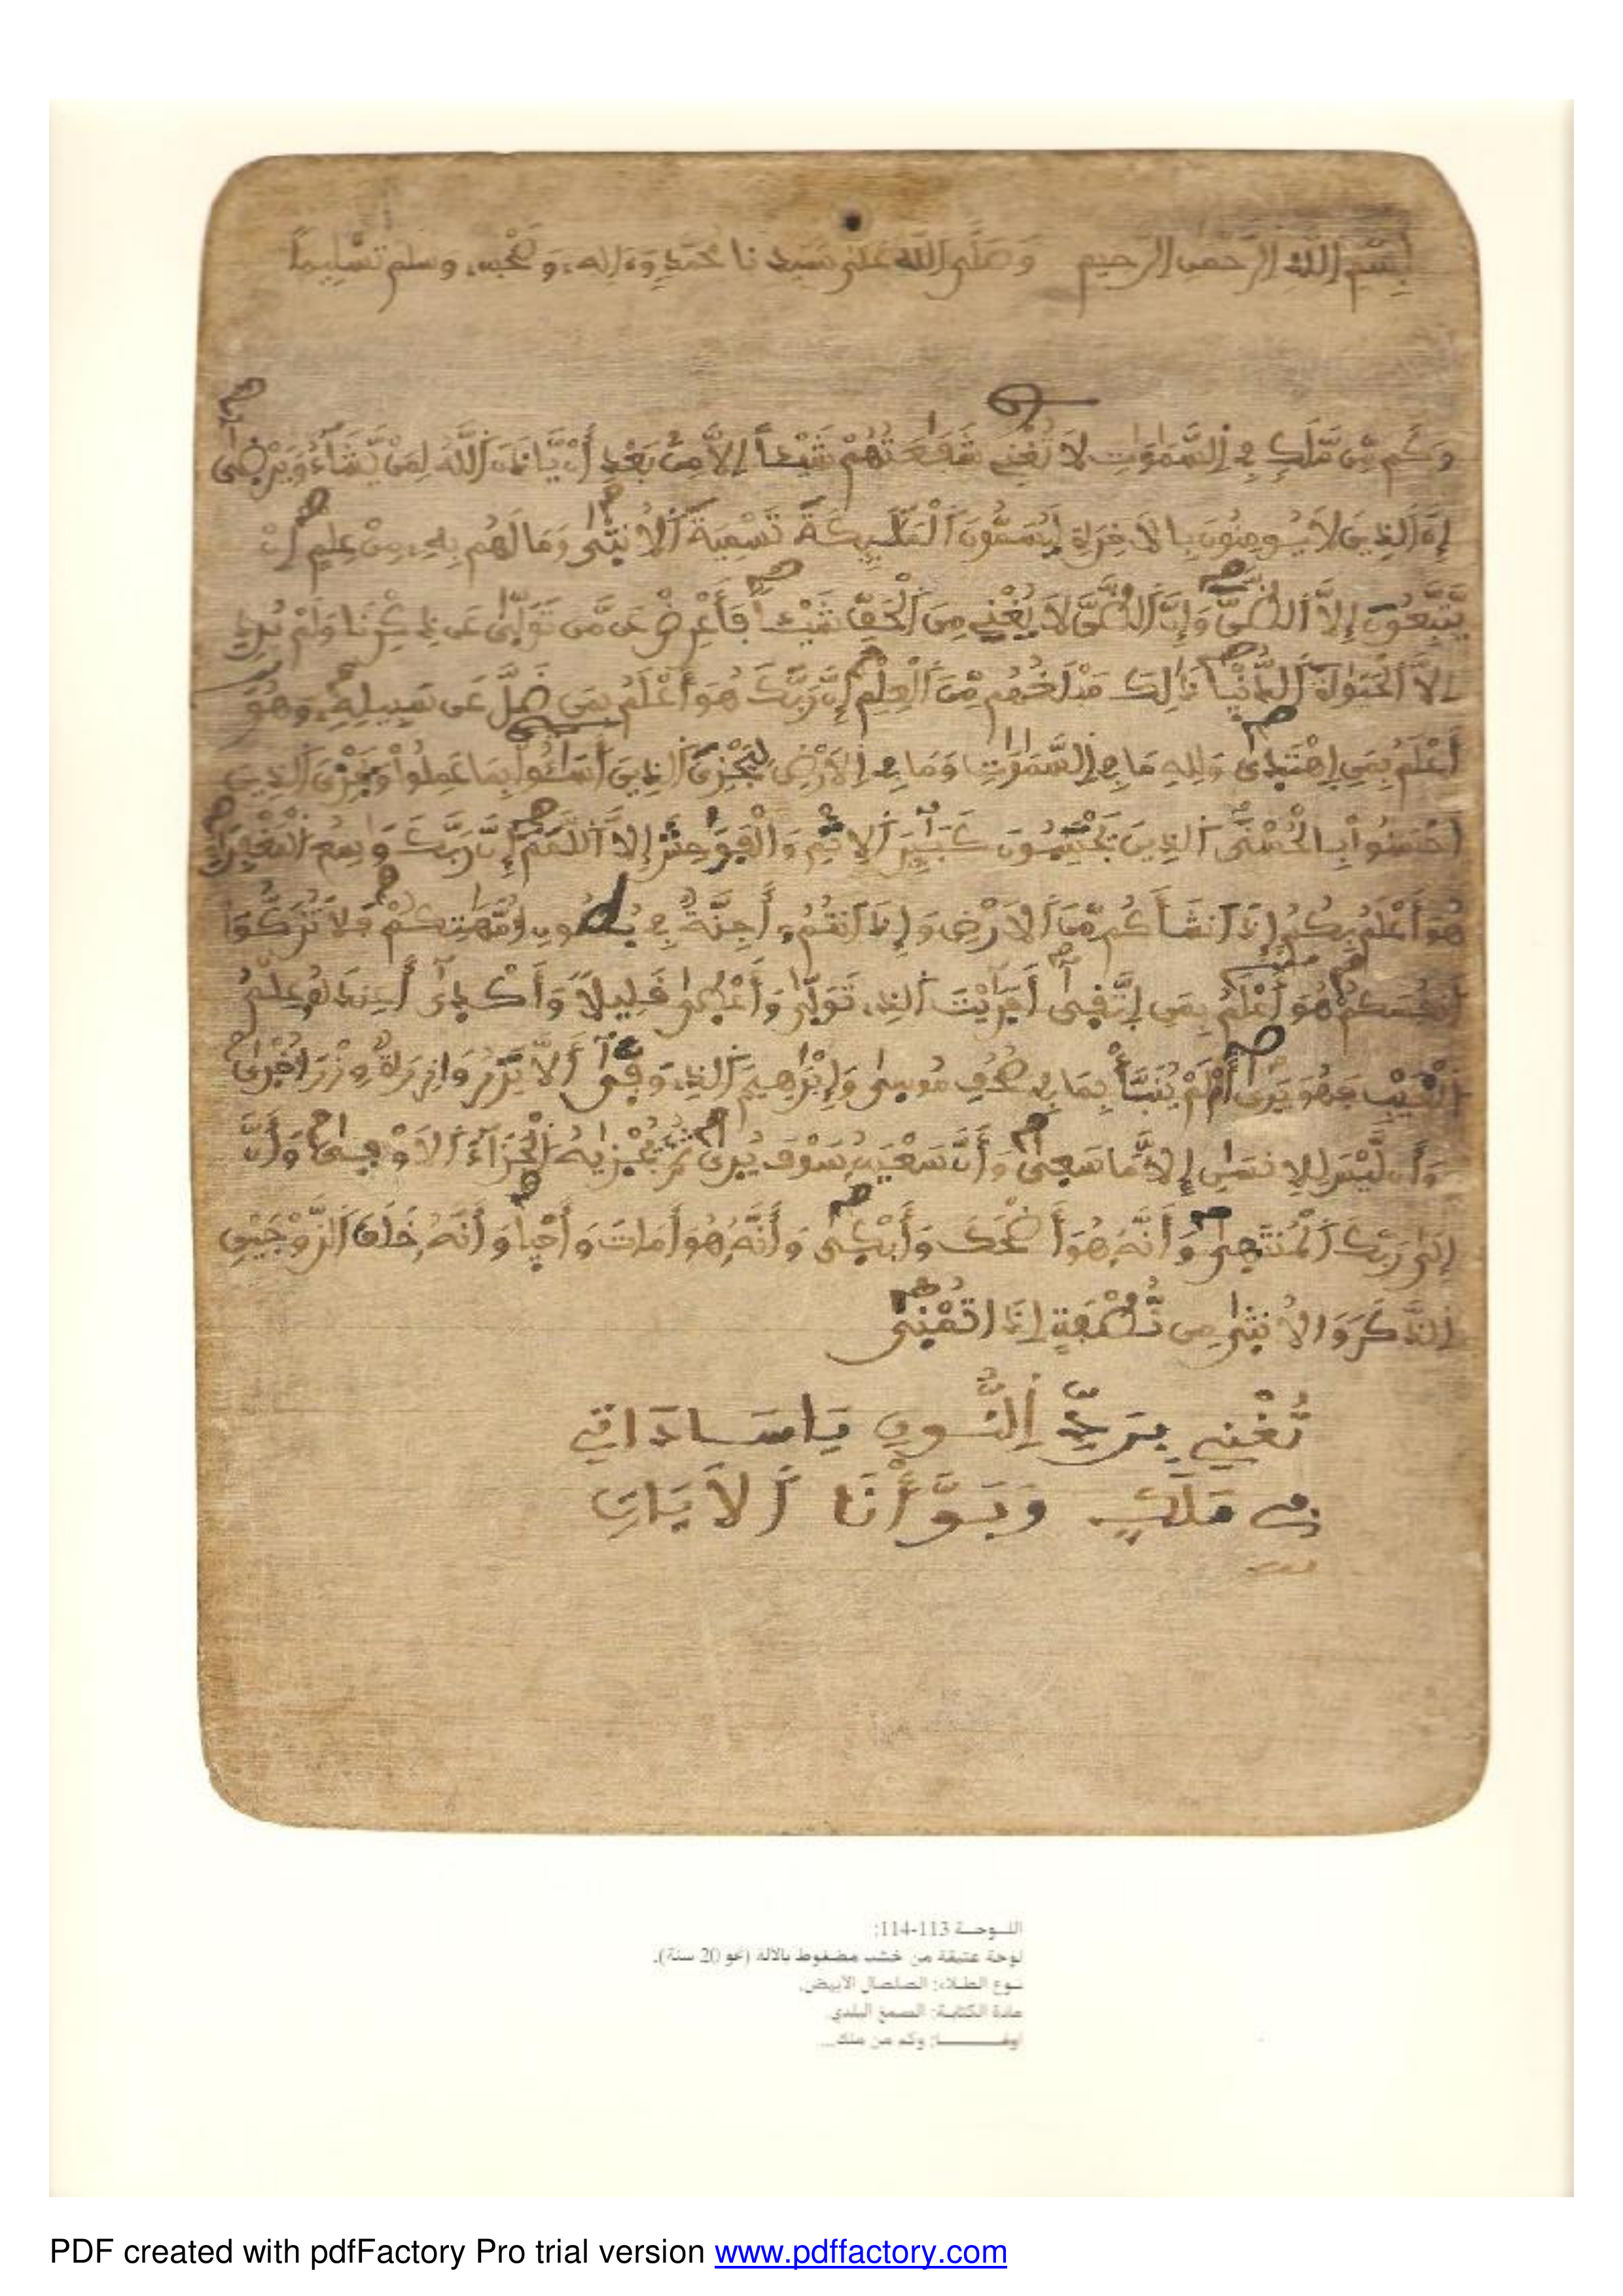 بِسْمِ اللَّهِ الرَّحْمَٰنِ الرَّحِيمِ وَصَلَّى اللَّهُ عَلَىٰ سَيِّدِنَا مُحَمَّدٍ وَءَالِهِ وَصَحْبِهِ وسلم تَسْلِيماً
وَكَم مِّن مَّلَكٍ فِي السَّمَٰوَٰتِ لَا تُغْنِي شَفَٰعَتُهُمْ شَيْـًٔا اِلَّا مِنۢ بَعْدِ أَنْ يَّاذَنَ اَللَّهُ لِمَنْ يَّشَآءُ وَيَرْضَىٰ
إِنَّ اَلذِينَ لَا يُومِنُونَ بِالَاخِرَةِ لَيُسَمُّونَ اَلْمَلَٰٓئِكَةَ تَسْمِيَةَ اَلُانثَىٰ وَمَا لَهُم بِهِۦ مِنْ عِلْمٍ اِنْ
يَّتَّبِعُونَ إِلَّا اَلظَّنَّ وَإِنَّ اَلظَّنَّ لَا يُغْنِي مِنَ اَلْحَقِّ شَيْـًٔا فَأَعْرِضْ عَن مَّن تَوَلَّىٰ عَن ذِكْرِنَا وَلَمْ يُرِدِ
اِلَّا اَلْحَيَوٰةَ اَلدُّنْيَا ذَٰلِكَ مَبْلَغُهُم مِّنَ اَلْعِلْمِ إِنَّ رَبَّكَ هُوَ أَعْلَمُ بِمَن ضَلَّ عَن سَبِيلِهِۦ وَهُوَ
أَعْلَمُ بِمَنِ اِهْتَدَىٰ وَلِلهِ مَا فِي اِلسَّمَٰوَٰتِ وَمَا فِي اِلَارْضِ لِيَجْزِيَ اَلذِينَ أَسَٰٓـُٔوا بِمَا عَمِلُواْ وَيَجْزِيَ اَلذِينَ
أَحْسَنُواْ بِالْحُسْنَى اَلذِينَ يَجْتَنِبُونَ كَبَٰٓئِرَ اَلِاثْمِ وَالْفَوَٰحِشَ إِلَّا اَللَّمَمَ إِنَّ رَبَّكَ وَٰسِعُ اُلْمَغْفِرَةِ
هُوَ أَعْلَمُ بِكُمُ إِذَ اَنشَأَكُم مِّنَ اَلَارْضِ وَإِذَ اَنتُمُۥ أَجِنَّةٌ فِي بُطُونِ أُمَّهَٰتِكُمْ فَلَا تُزَكُّوٓاْ
أَنفُسَكُمْ هُوَ أَعْلَمُ بِمَنِ اِتَّقَىٰٓ أَفَرَءَيْتَ اَلذِي تَوَلَّىٰ وَأَعْطَىٰ قَلِيلًا وَأَكْدَىٰٓ أَعِندَهُۥ عِلْمُ
اُلْغَيْبِ فَهُوَ يَرَىٰٓ أَمْ لَمْ يُنَبَّأْ بِمَا فِي صُحُفِ مُوسَىٰ وَإِبْرَٰهِيمَ اَلذِي وَفَّىٰٓ أَلَّا تَزِرُ وَازِرَةٌ وِزْرَ أُخْرَىٰ
وَأَن لَّيْسَ لِلِانسَٰنِ إِلَّا مَا سَعَىٰ وَأَنَّ سَعْيَهُۥ سَوْفَ يُرَىٰ ثُمَّ يُجْزَىٰهُ اُلْجَزَآءَ اَلَاوْفَىٰ وَأَنَّ
إِلَىٰ رَبِّكَ اَلْمُنتَهَىٰ وَأَنَّهُۥ هُوَ أَضْحَكَ وَأَبْكَىٰ وَأَنَّهُۥ هُوَ أَمَاتَ وَأَحْيَا وَأَنَّهُۥ خَلَقَ اَلزَّوْجَيْنِ
اِلذَّكَرَ وَالُانثَىٰ مِن نُّطْفَةٍ إِذَا تُمْنَىٰ
تُغْنِي يَاسَادَاتِي
فِي مَلَكٍ وَبَوَّأْنَا اَلَايَاتِ
اللوحة 113-114:
لوحة عتيقة من خشب مضغوط بالآلة (نحو 20 سنة).
نوع الطلاء: الصلصال الأبيض.
مادة الكتابة: الصمغ البلدي
وكم من ملك...
PDF created with pdfFactory Pro trial version www.pdffactory.com